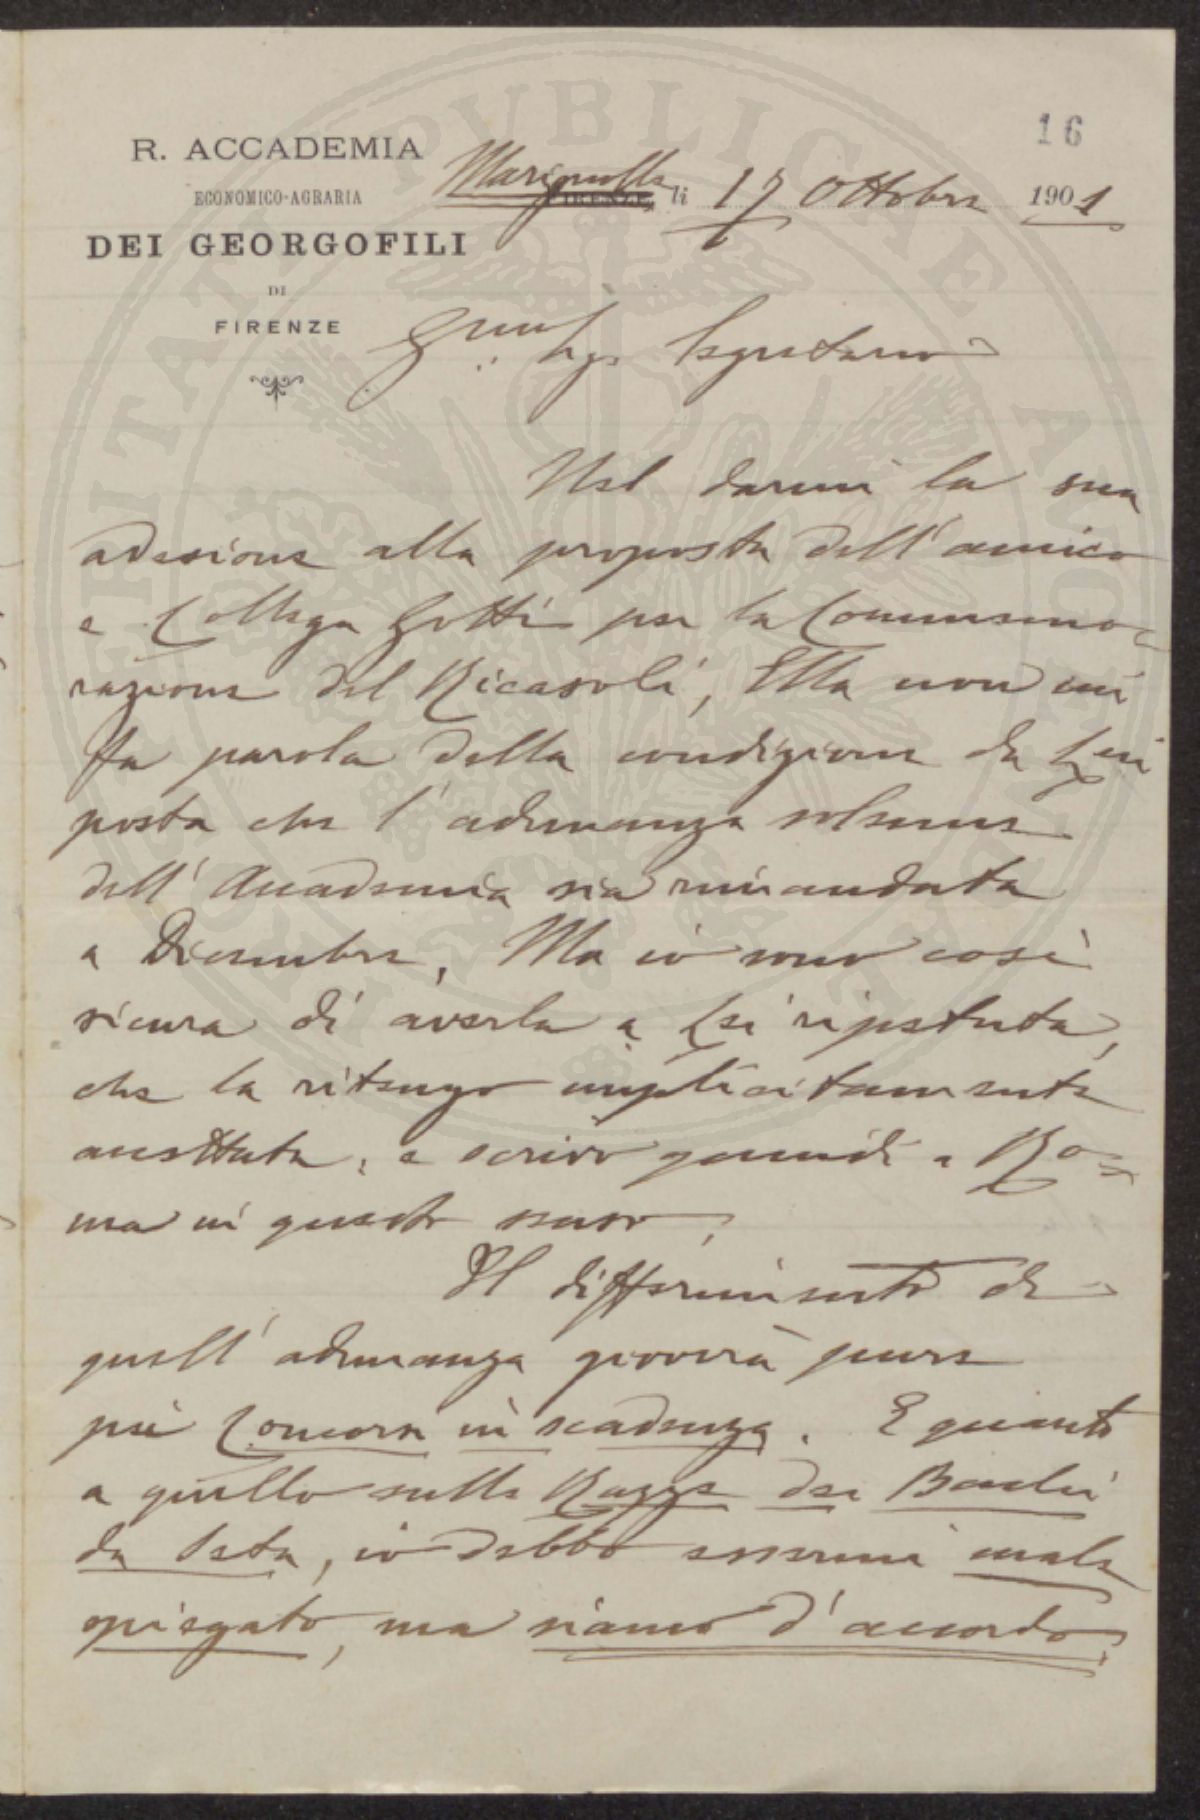 16
R. ACCADEMIA
ECONOMICO-AGRARIA
DEI GEORGOFILI
DI
FIRENZE
Marignolle FIRENZE, li 17 Ottobre 1901
Sig. Segretario
Nel darmi la sua
adesione alla proposta dell'amico
e Collega Gotti per la Commemo=
razione del Ricasoli, Ella non mi
fa parola della condizione da Lei
posta che l'adunanza solenne
dell'Accademia sia rimandata
a Dicembre. Ma io sono così
sicura di averla a Lei ripetuta,
che la ritengo implicitamente
accettata, e scrivo quindi a Ro=
ma in questo senso.
Il differimento di
quell'adunanza gioverà pure
pei Concorsi in scadenza. E quanto
a quello sulle Razze dei Bachi
da Seta, io debbo essermi male
spiegato, ma siamo d'accordo.
PUBLICAE